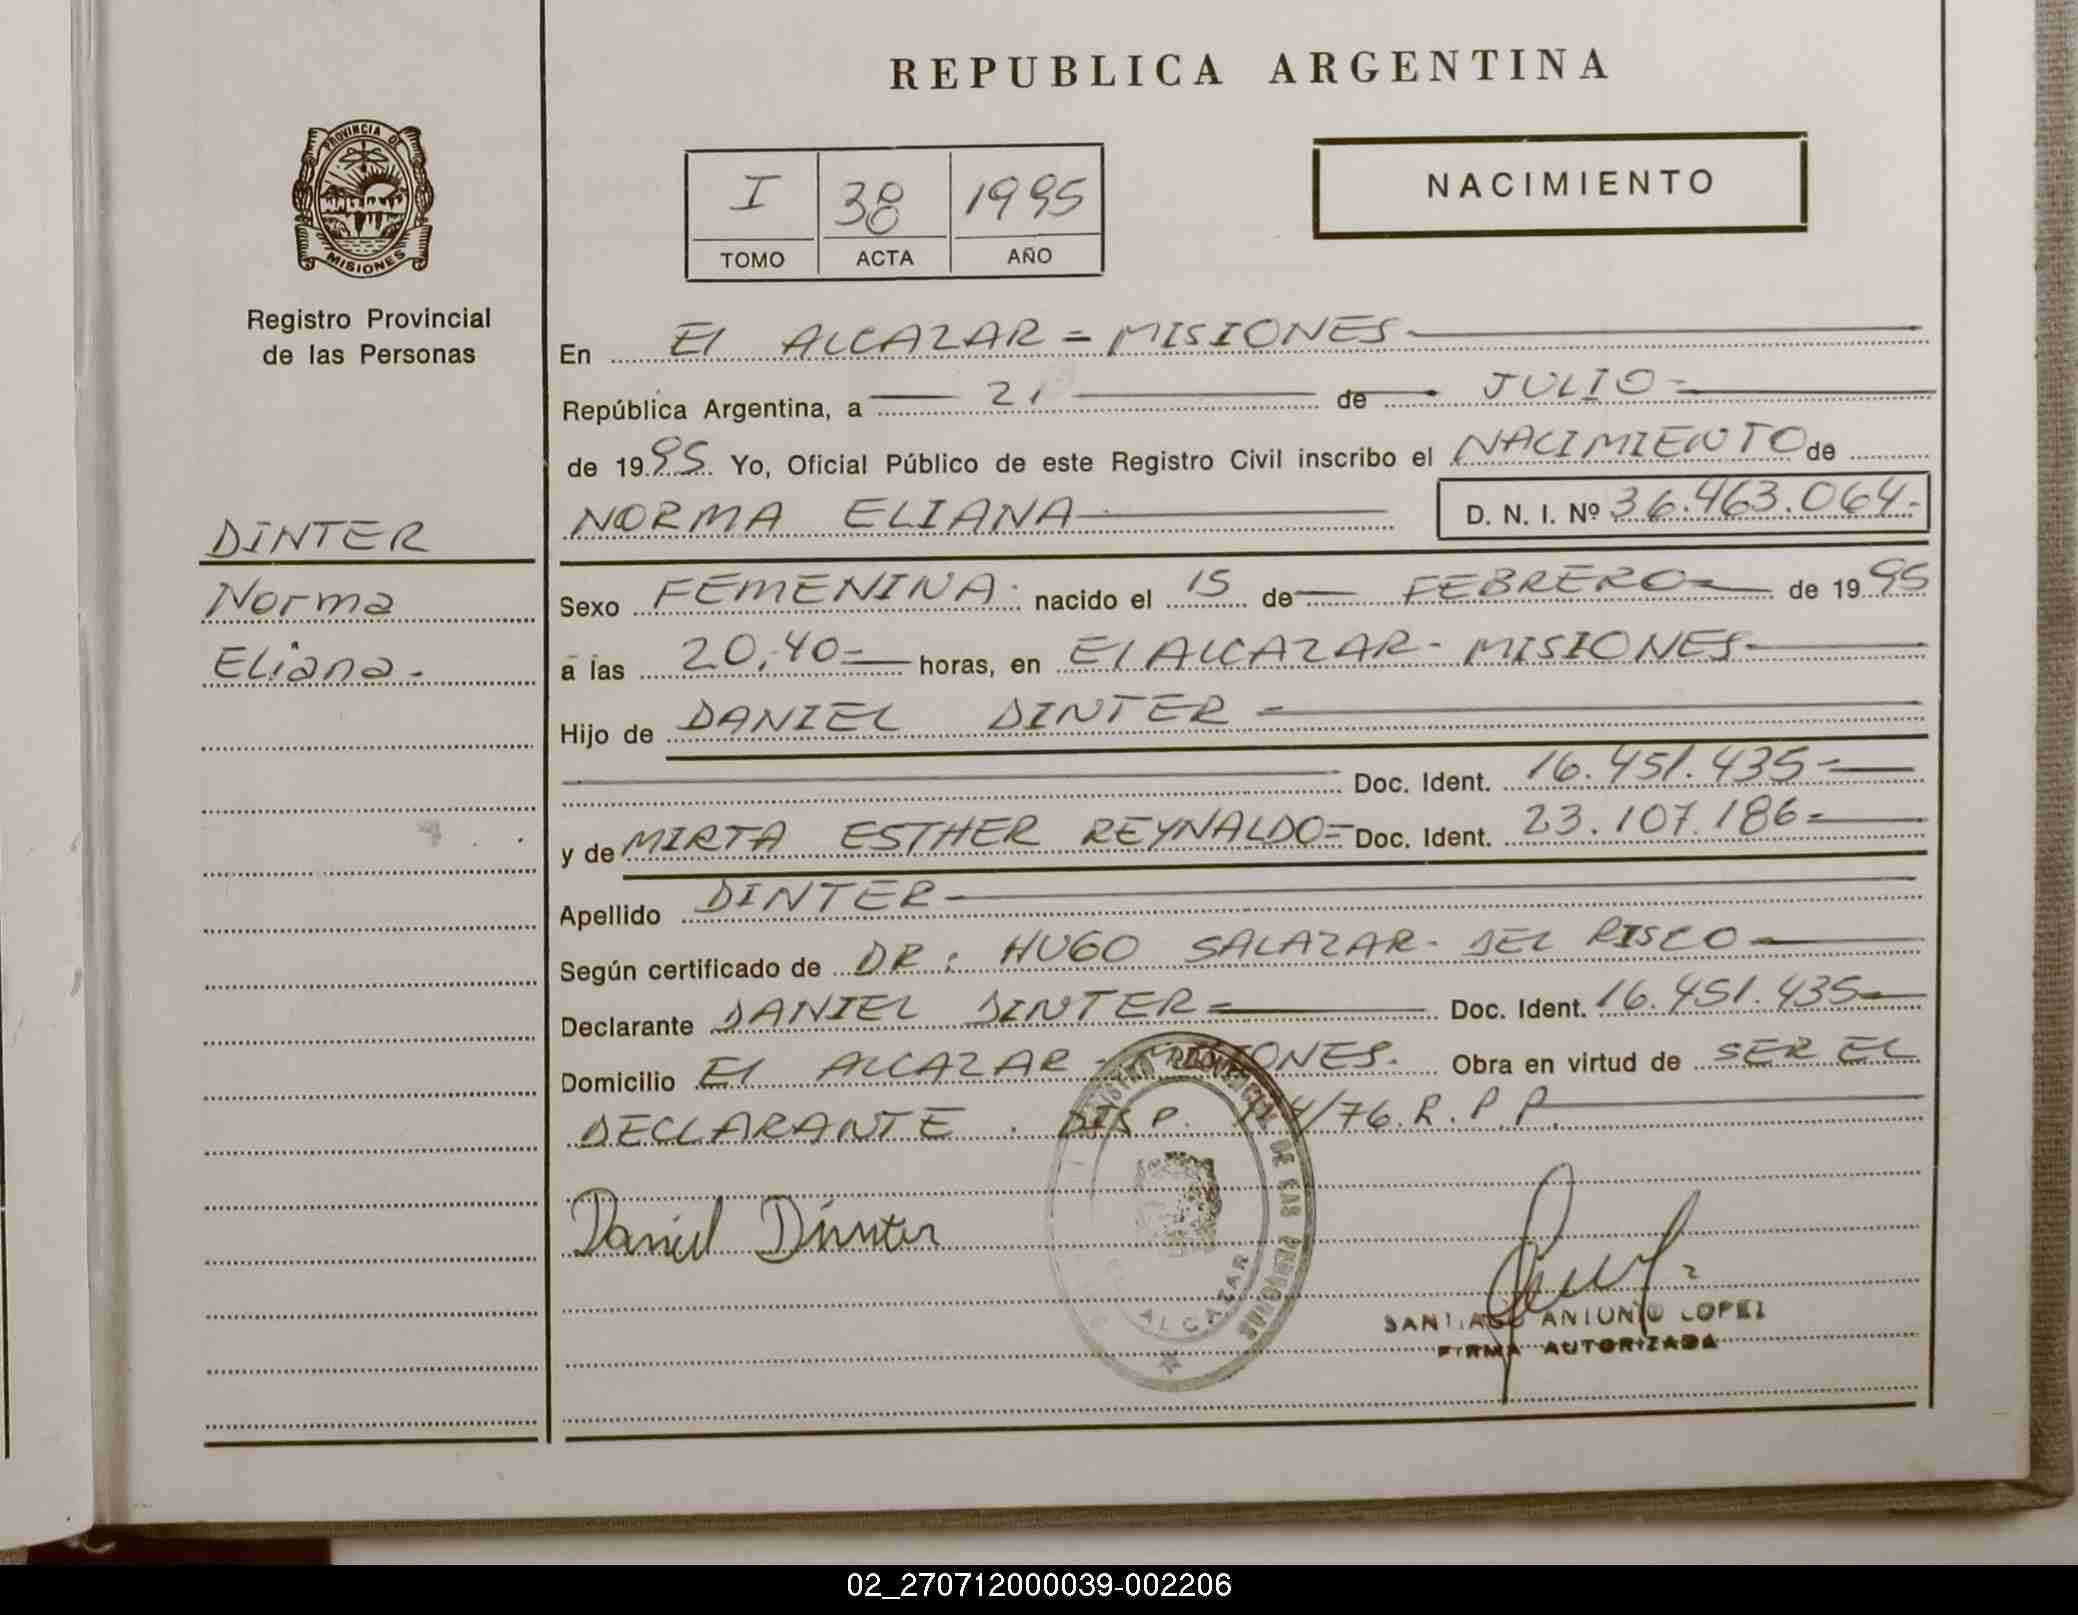 REPUBLICA ARGENTINA
PROVINCIA DE
MISIONES
Registro Provincial
de las Personas
I 38 1995
TOMO ACTA AÑO
NACIMIENTO
En El ALCAZAR = MISIONES
República Argentina, a 21 de JULIO-
de 1995. Yo, Oficial Público de este Registro Civil inscribo el NACIMIENTO de
NORMA ELIANA D. N. I. Nº 36.463.064-
DINTER
Norma
Eliana.
Sexo FEMENINA. nacido el 15 de FEBRERO de 1995
a las 20,40= horas, en El ALCAZAR - MISIONES
Hijo de DANIEL DINTER -
Doc. Ident. 16.451.435-
y de MIRTA ESTHER REYNALDO= Doc. Ident. 23.107.186-
Apellido DINTER
Según certificado de DR: HUGO SALAZAR- DEL RISCO
Declarante DANIEL DINTER= Doc. Ident. 16.451.435-
Domicilio El ALCAZAR - MISIONES. Obra en virtud de SER EL
DECLARANTE . DISP. /76.R.P.P.
Daniel Dinter
REGISTRO PROVINCIAL DE LAS PERSONAS
ALCAZAR
SANTIAGO ANTONIO LOPEZ
FIRMA AUTORIZADA
02_270712000039-002206